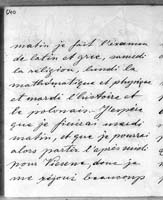 matin je fait l'examen
de latin et grec, samedi
la religion, lundi la
mathématique et physique
et mardi l'histoire et
le polonais. J'espère
que je finirai mardi
matin, et que je pourrai
alors partir l'après midi
pour Vienne, dont je
me réjoui beaucoup